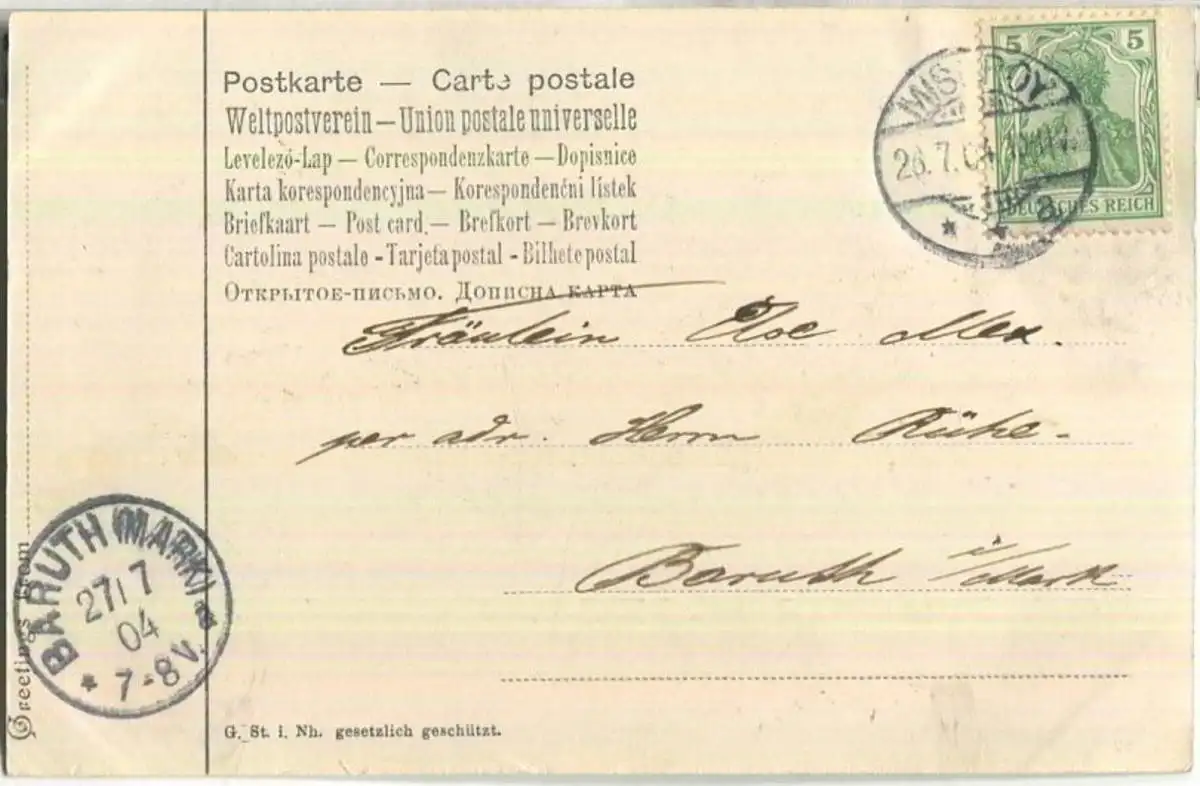 Postkarte — Carte postale
Weltpostverein — Union postale universelle
Levelező-Lap — Correspondenzkarte — Dopisnice
Karta korespondencyjna — Korespondenčni listek
Briefkaart — Post card. — Brefkort — Brevkort
Cartolina postale - Tarjeta postal - Bilhete postal
Открытое-письмо. Дописна карта
5 5
DEUTSCHES REICH
26.7.04
a
Fräulein Else Mex.
per adr. Herrn Rühe.
Baruth i/Mark
BARUTH (MARK) a
27/7
04
* 7-8V.
Greetings from
G. St. i. Nh. gesetzlich geschützt.